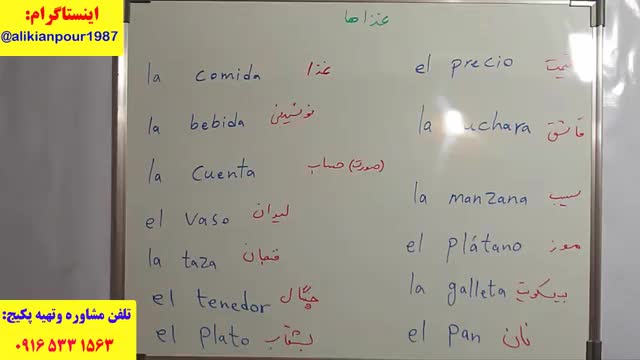 اینستاگرام:
@alikianpour1987
غذاها
la comida غذا
la bebida نوشیدنی
la cuenta (صورت) حساب
el vaso لیوان
la taza فنجان
el tenedor چنگال
el plato بشقاب
el precio قیمت
la cuchara قاشق
la manzana سیب
el plátano موز
la galleta بیسکویت
el pan نان
تلفن مشاوره وتهیه پکیج:
۰۹۱۶ ۵۳۳ ۱۵۶۳